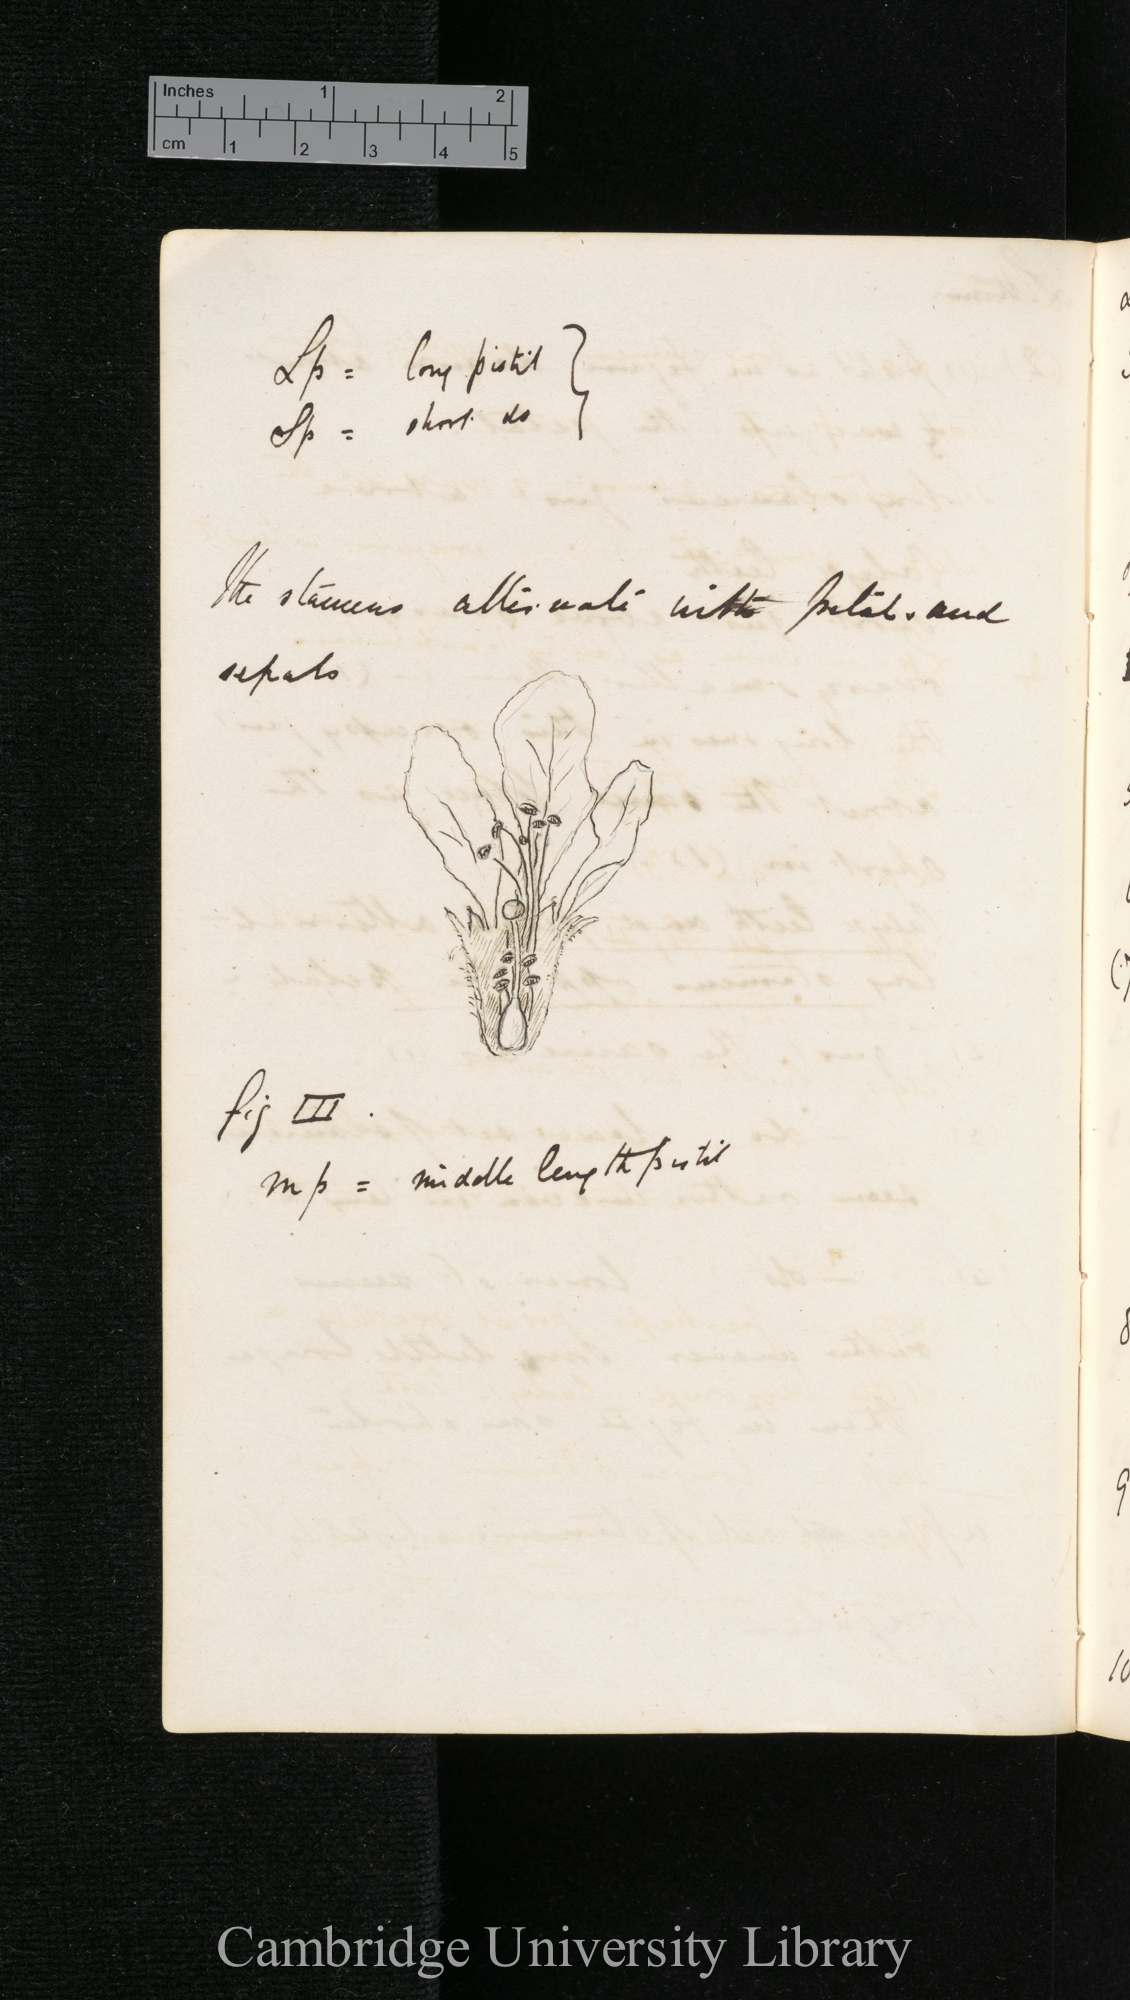 Inches 1 2
cm 1 2 3 4 5
Lp = long pistil }
Sp = short do }
The stamens alternate with petals and
sepals
fig III.
mp = middle length pistil
8
9
10
Cambridge University Library